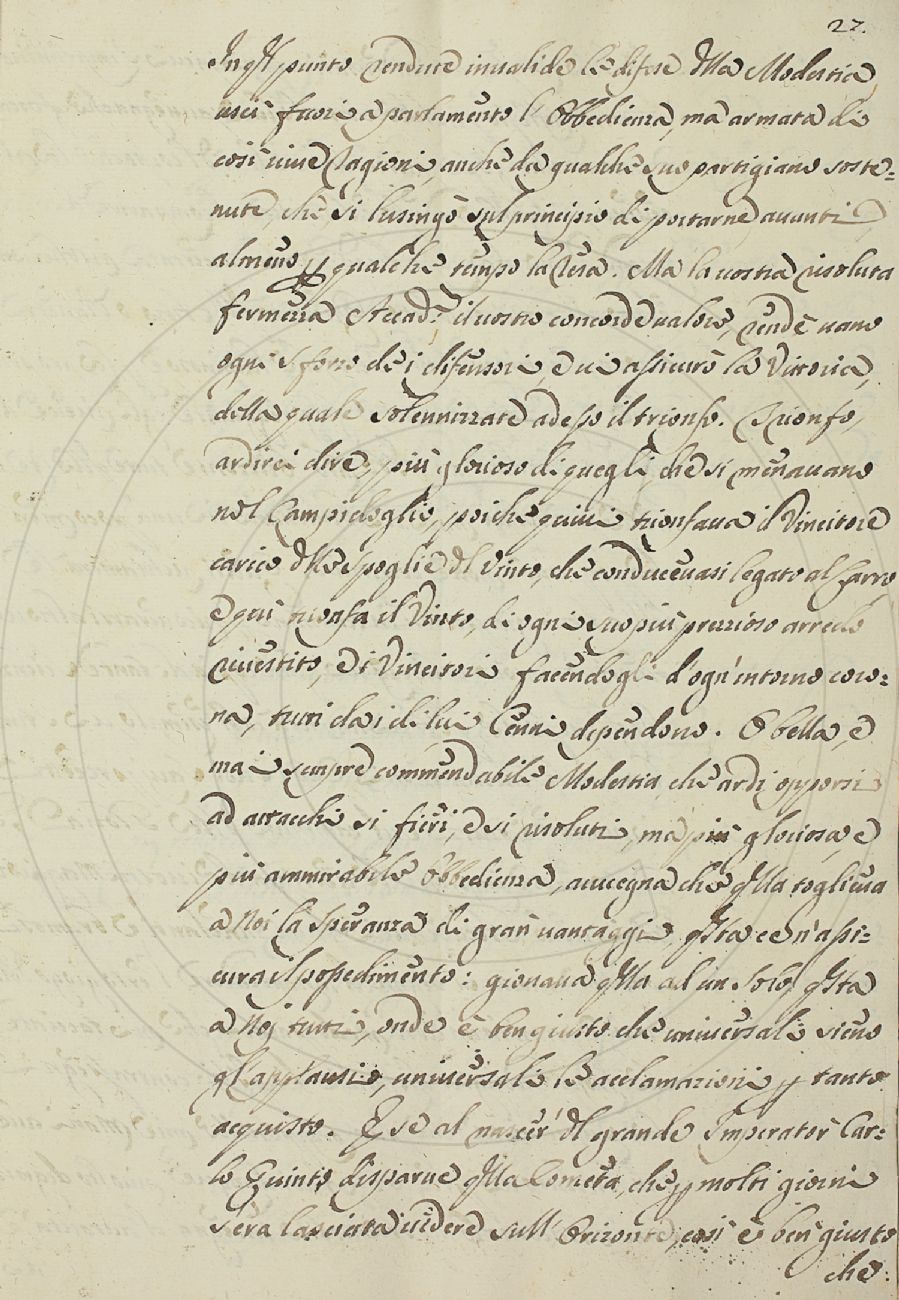 27.
In qsto punto rendute invalide le difese dlla Modestia
uscì fuori a parlamento l'Obbedienza, mà armata di
così vive ragioni, anche da qualche suo partigiano soste=
nute, che si lusingò sul principio di portarne avanti,
almeno p qualche tempo la resa. Ma la vostra risoluta
fermezza Accad.i il vostro concorde valore, rende vano
ogni sforzo de i difensori, e vi assicurò la Vittoria,
della quale solennizzate adesso il trionfo. Trionfo,
ardirei dire, più glorioso di quegli, che si menavano
nel Campidoglio, poiche quivi trionfava il Vincitore
carico dlle spoglie dl Vinto, che conducevasi legato al Carro,
e qui trionfa il Vinto, di ogni suo più prezzioso arredo
rivestito, e i Vincitori facendogli d'ogn'intorno coro=
na, tutti da i di lui Cenni dipendono. O bella, e
mai sempre commendabile Modestia, che ardì opporsi
ad attacchi si fieri, e si risoluti, ma più gloriosa, e
più ammirabile Obbedienza, avvegna che qlla toglieva
a Noi la speranza di gran vantaggi, qsta ce n'assi=
cura il possedimento: giovava qlla ad un solo, qsta
a Noj tutti, onde è ben giusto che universali sieno
gl'applausi, universali le acclamazioni p tanto
acquisto. E se al nascer dl grande Imperator Car=
lo Quinto disparve qlla Cometa, che p molti giorni
s'era lasciata vedere sull'Orizonte, così è ben giusto
che